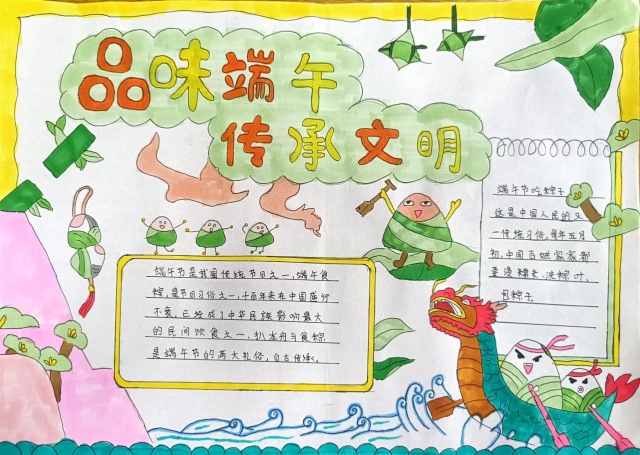 品味端午
传承文明
端午节是我国传统节日之一,端午食
粽,是节日习俗之一,千百年来在中国盛行
不衰,已经成了中华民族影响最大
的民间饮食之一,扒龙舟与食粽
是端午节的两大礼俗,自古传承,
端午节吃粽子
这是中国人民的又
一传统习俗,每年五月
初,中国百姓家家都
要浸糯米、洗粽叶、
包粽子